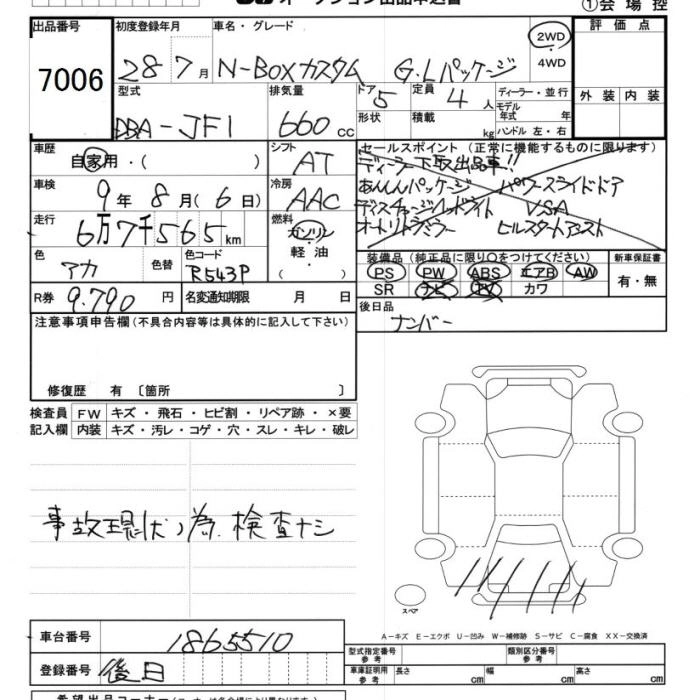 ①会場控
出品番号 初度登録年月 車名・グレード 評価点
7006 28 7月 N-BOXカスタム G・Lパッケージ 2WD
・
4WD
型式 排気量 ドア 定員 ディーラー・並行 外装 内装
DBA-JF1 660cc 5 4人 モデル年式 年
形状 積載 kg ハンドル 左・右
車歴 シフト セールスポイント(正常に機能するものに限ります)
自家用・( ) AT ディーラー下取出品車!!
車検 冷房 あんしんパッケージ パワースライドドア
9年8月(6日) AAC ディスチャージヘッドライト VSA
走行 燃料 オートリトラミラー ヒルスタートアシスト
6万7千565km ガソリン
色 色替 色コード 軽油 装備品(純正品に限り○をつけてください) 新車保証書
アカ R543P ・ PS PW ABS エアB AW 有・無
( ) SR ナビ TV カワ
R券 9.790円 名変通知期限 月 日 後日品
注意事項申告欄(不具合内容等は具体的に記入して下さい) ナンバー
修復歴 有〔箇所 〕
検査員 FW キズ・飛石・ヒビ割・リペア跡・×要
記入欄 内装 キズ・汚レ・コゲ・穴・スレ・キレ・破レ
事故現状ノ為、検査ナシ
スペア
A-キズ E-エクボ U-凹み W-補修跡 S-サビ C-腐食 XX-交換済
車台番号 1865510 型式指定番号 参考 類別区分番号 参考
登録番号 後日 車庫証明用 参考 長さ cm 幅 cm 高さ cm